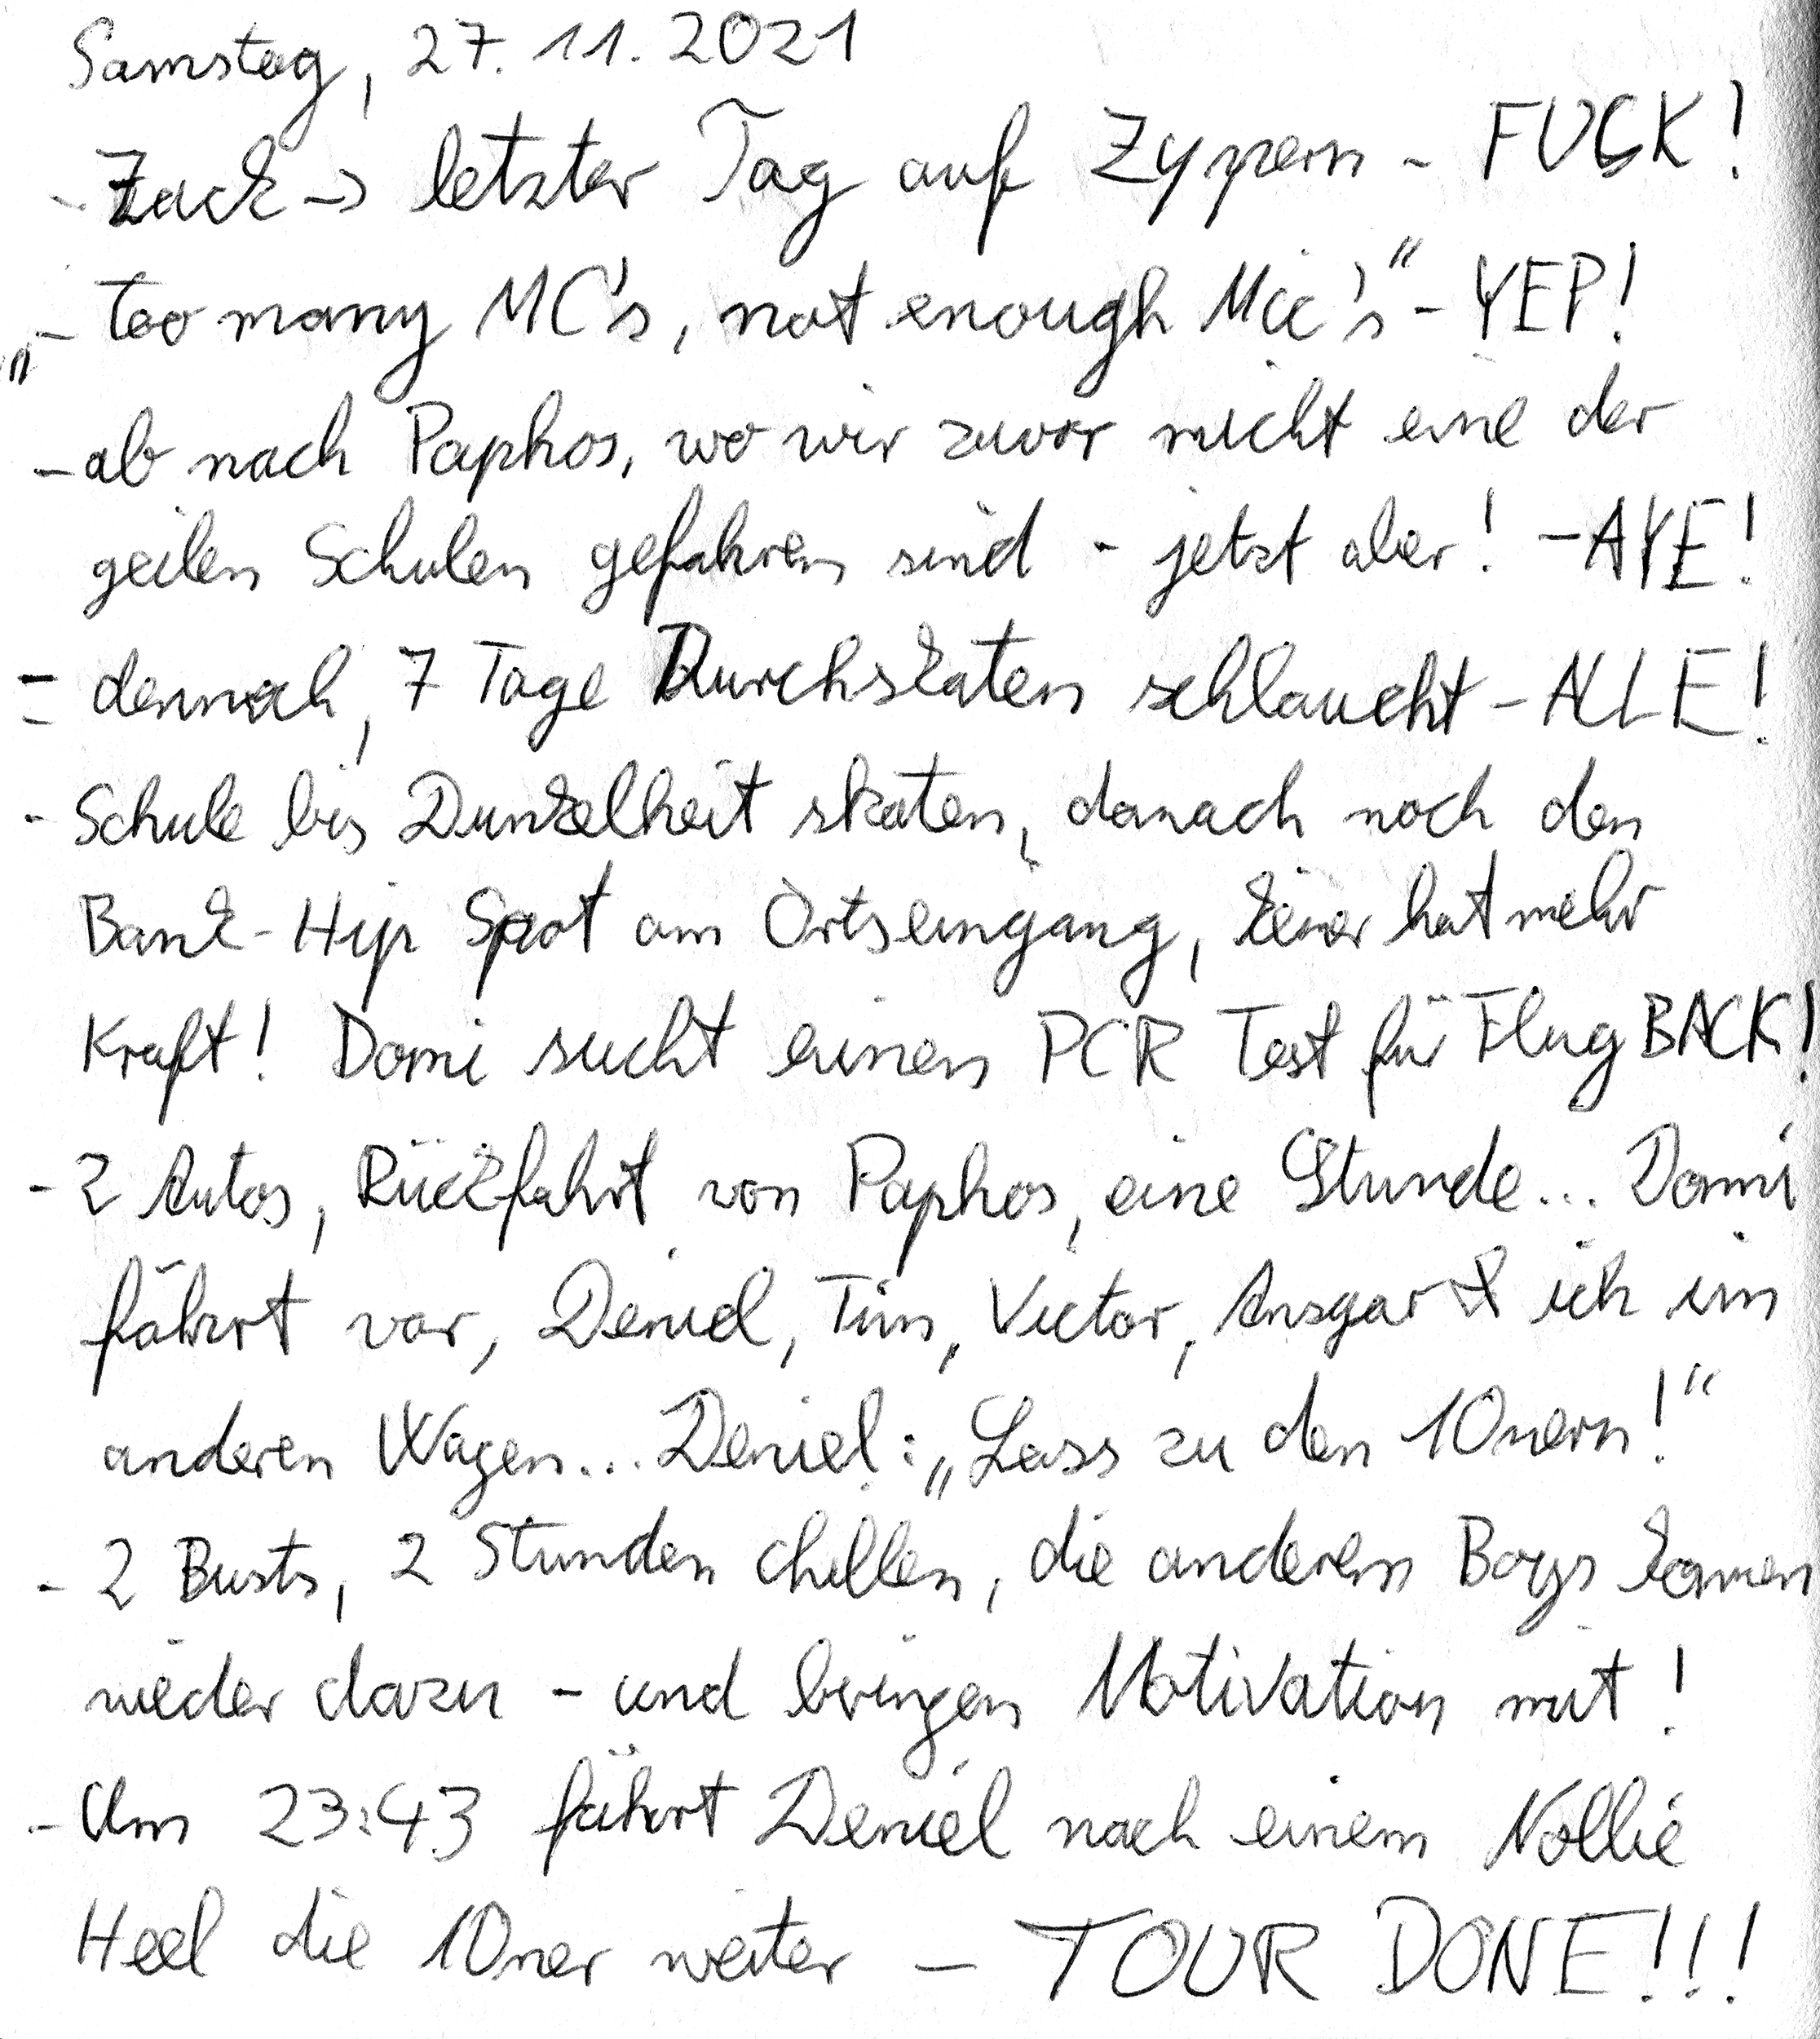 Samstag, 27.11.2021
- Zack -> letzter Tag auf Zypern - FUCK!
„- Too many MC's, not enough Mic's“ - YEP!
- ab nach Paphos, wo wir zuvor nicht eine der
geilen Schulen gefahren sind - jetzt aber! - AYE!
= dennoch, 7 Tage Durchskaten schlaucht - ALLE!
- Schule bis Dunkelheit skaten, danach noch den
Bank-Hip Spot am Ortseingang, keiner hat mehr
Kraft! Domi sucht einen PCR Test für Flug BACK!
- 2 Autos, Rückfahrt von Paphos, eine Stunde... Domi
fährt vor, Deniel, Tim, Victor, Ansgar & ich im
anderen Wagen... Deniel: „Lass zu den 10nern!“
- 2 Busts, 2 Stunden chillen, die anderen Boys kamen
wieder dazu - und bringen Motivation mit!
- Um 23:43 fährt Deniel nach einem Nollie
Heel die 10ner weiter - TOUR DONE!!!